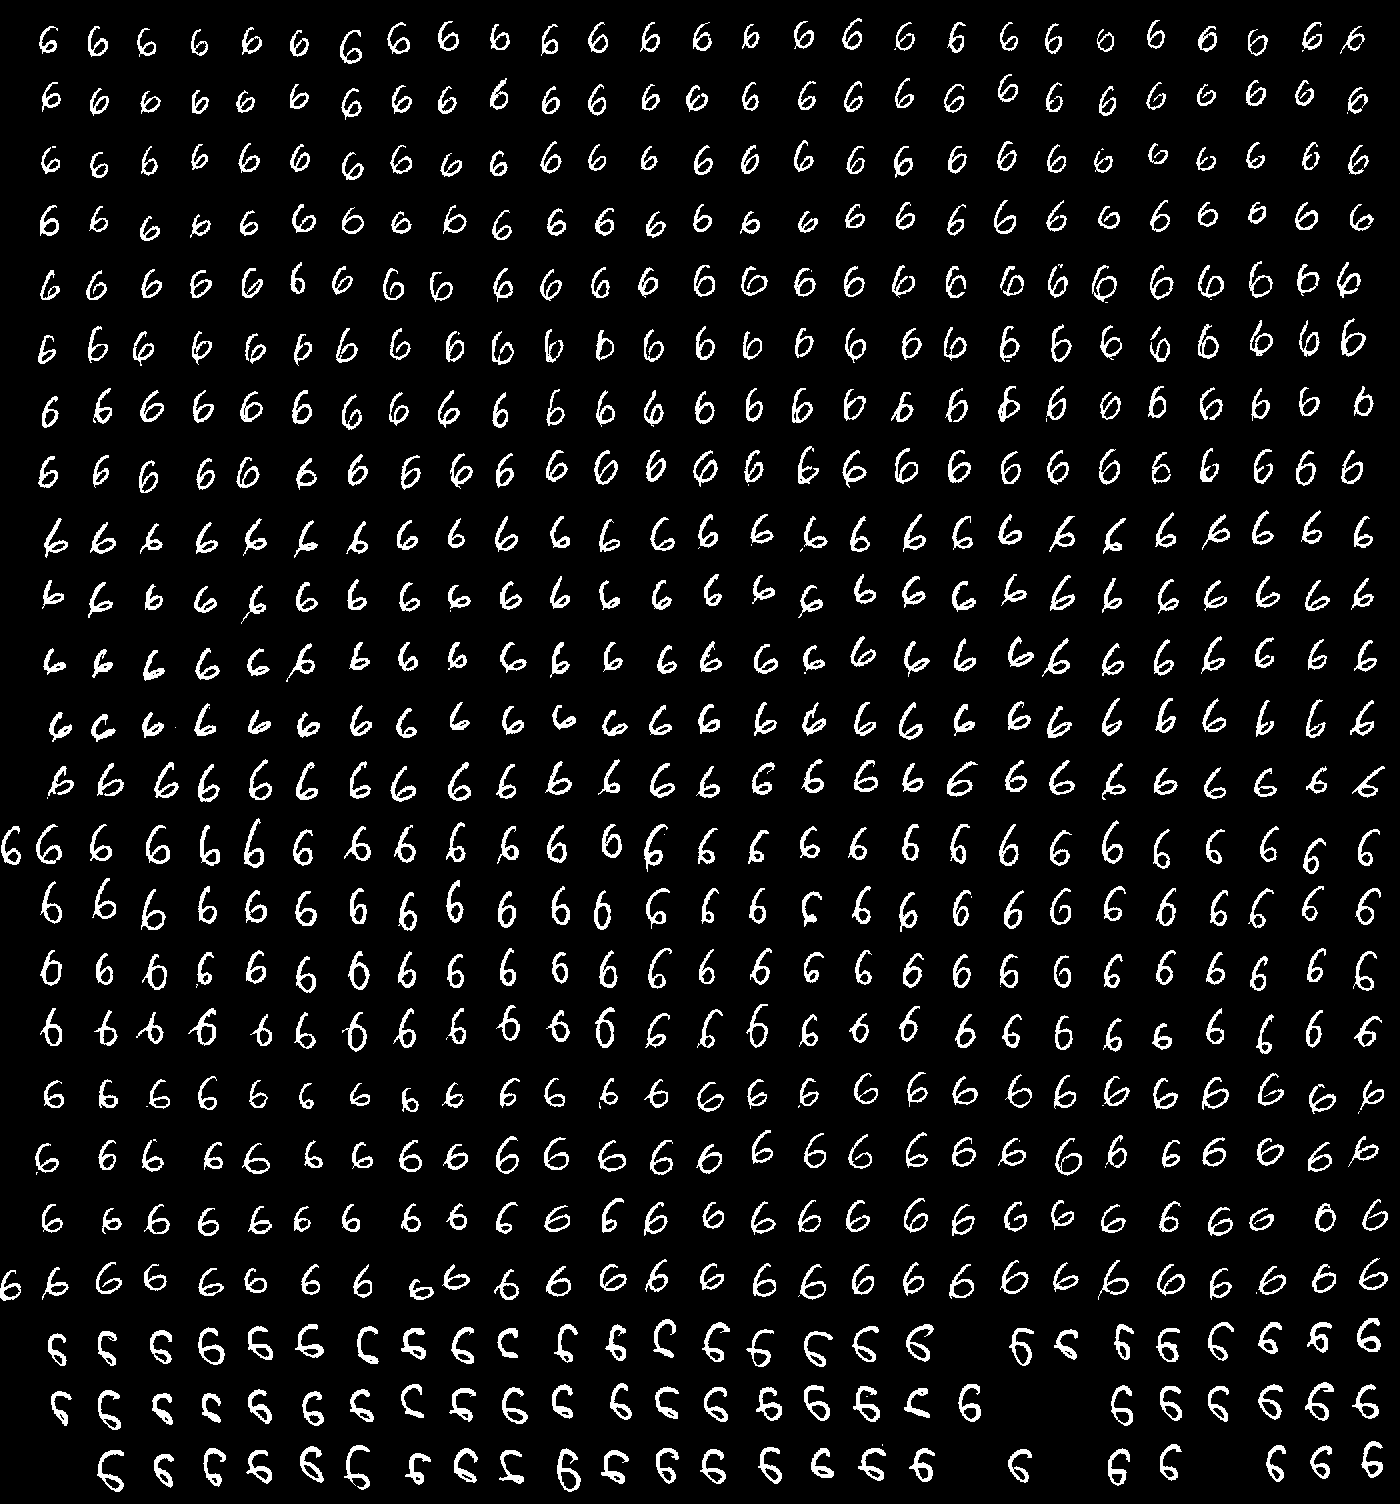 6 6 6 6 6 6 6 6 6 6 6 6 6 6 6 6 6 6 6 6 6 6 6 6 6 6 6
6 6 6 6 6 6 6 6 6 6 6 6 6 6 6 6 6 6 6 6 6 6 6 6 6 6 6
6 6 6 6 6 6 6 6 6 6 6 6 6 6 6 6 6 6 6 6 6 6 6 6 6 6 6
6 6 6 6 6 6 6 6 6 6 6 6 6 6 6 6 6 6 6 6 6 6 6 6 6 6 6
6 6 6 6 6 6 6 6 6 6 6 6 6 6 6 6 6 6 6 6 6 6 6 6 6 6 6
6 6 6 6 6 6 6 6 6 6 6 6 6 6 6 6 6 6 6 6 6 6 6 6 6 6 6
6 6 6 6 6 6 6 6 6 6 6 6 6 6 6 6 6 6 6 6 6 6 6 6 6 6 6
6 6 6 6 6 6 6 6 6 6 6 6 6 6 6 6 6 6 6 6 6 6 6 6 6 6 6
6 6 6 6 6 6 6 6 6 6 6 6 6 6 6 6 6 6 6 6 6 6 6 6 6 6 6
6 6 6 6 6 6 6 6 6 6 6 6 6 6 6 6 6 6 6 6 6 6 6 6 6 6 6
6 6 6 6 6 6 6 6 6 6 6 6 6 6 6 6 6 6 6 6 6 6 6 6 6 6 6
6 6 6 6 6 6 6 6 6 6 6 6 6 6 6 6 6 6 6 6 6 6 6 6 6 6 6
6 6 6 6 6 6 6 6 6 6 6 6 6 6 6 6 6 6 6 6 6 6 6 6 6 6 6
6 6 6 6 6 6 6 6 6 6 6 6 6 6 6 6 6 6 6 6 6 6 6 6 6 6 6 6
6 6 6 6 6 6 6 6 6 6 6 6 6 6 6 6 6 6 6 6 6 6 6 6 6 6 6
6 6 6 6 6 6 6 6 6 6 6 6 6 6 6 6 6 6 6 6 6 6 6 6 6 6 6
6 6 6 6 6 6 6 6 6 6 6 6 6 6 6 6 6 6 6 6 6 6 6 6 6 6 6
6 6 6 6 6 6 6 6 6 6 6 6 6 6 6 6 6 6 6 6 6 6 6 6 6 6 6
6 6 6 6 6 6 6 6 6 6 6 6 6 6 6 6 6 6 6 6 6 6 6 6 6 6 6
6 6 6 6 6 6 6 6 6 6 6 6 6 6 6 6 6 6 6 6 6 6 6 6 6 6 6
6 6 6 6 6 6 6 6 6 6 6 6 6 6 6 6 6 6 6 6 6 6 6 6 6 6 6 6
6 6 6 6 6 6 6 6 6 6 6 6 6 6 6 6 6 6 6 6 6 6 6 6 6 6
6 6 6 6 6 6 6 6 6 6 6 6 6 6 6 6 6 6 6 6 6 6 6 6 6
6 6 6 6 6 6 6 6 6 6 6 6 6 6 6 6 6 6 6 6 6 6 6